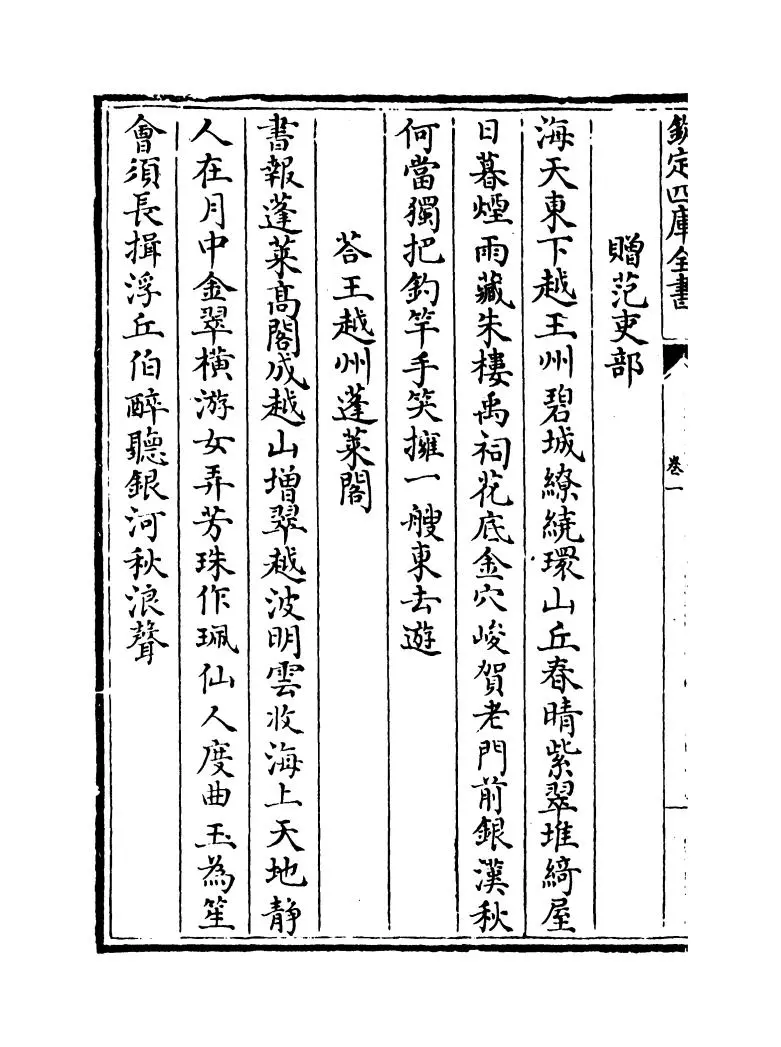 欽定四庫全書
卷一
贈范吏部
海天東下越王州碧城繚繞環山丘春晴紫翠堆綺屋
日暮煙雨藏朱樓禹祠花底金穴峻賀老門前銀漢秋
何當獨把釣竿手笑擁一艘東去遊
荅王越州蓬萊閣
書報蓬萊高閣成越山增翠越波明雲收海上天地静
人在月中金翠橫游女弄芳珠作珮仙人度曲玉為笙
會須長揖浮丘伯醉聽銀河秋浪聲